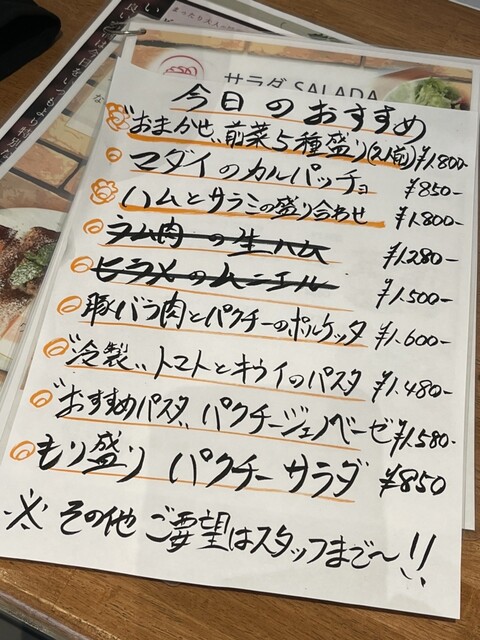 サラダ SALADA
今日のおすすめ
"おまかせ"前菜5種盛り(2人前) ¥1.800-
マダイのカルパッチョ ¥850-
ハムとサラミの盛り合わせ ¥1.800-
ラム肉の生ハム ¥1.280-
ヒラメのムニエル ¥1.500-
豚バラ肉とパクチーのポルケッタ ¥1.600-
"冷製"トマトとキウイのパスタ ¥1.480-
"おすすめパスタ"パクチージェノベーゼ ¥1.580-
もり盛り パクチーサラダ ¥850
※ その他 ご要望はスタッフまで〜!!